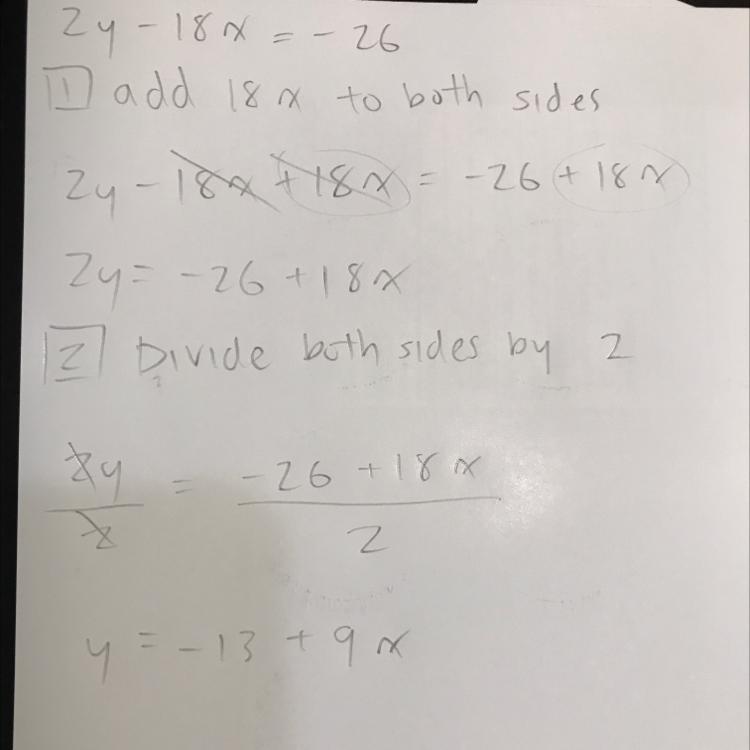 2y - 18x = - 26
1 add 18x to both sides
2y - 18x + 18x = -26 + 18x
2y = -26 + 18x
2 Divide both sides by 2
2y = -26 + 18x
2 2
y = -13 + 9x